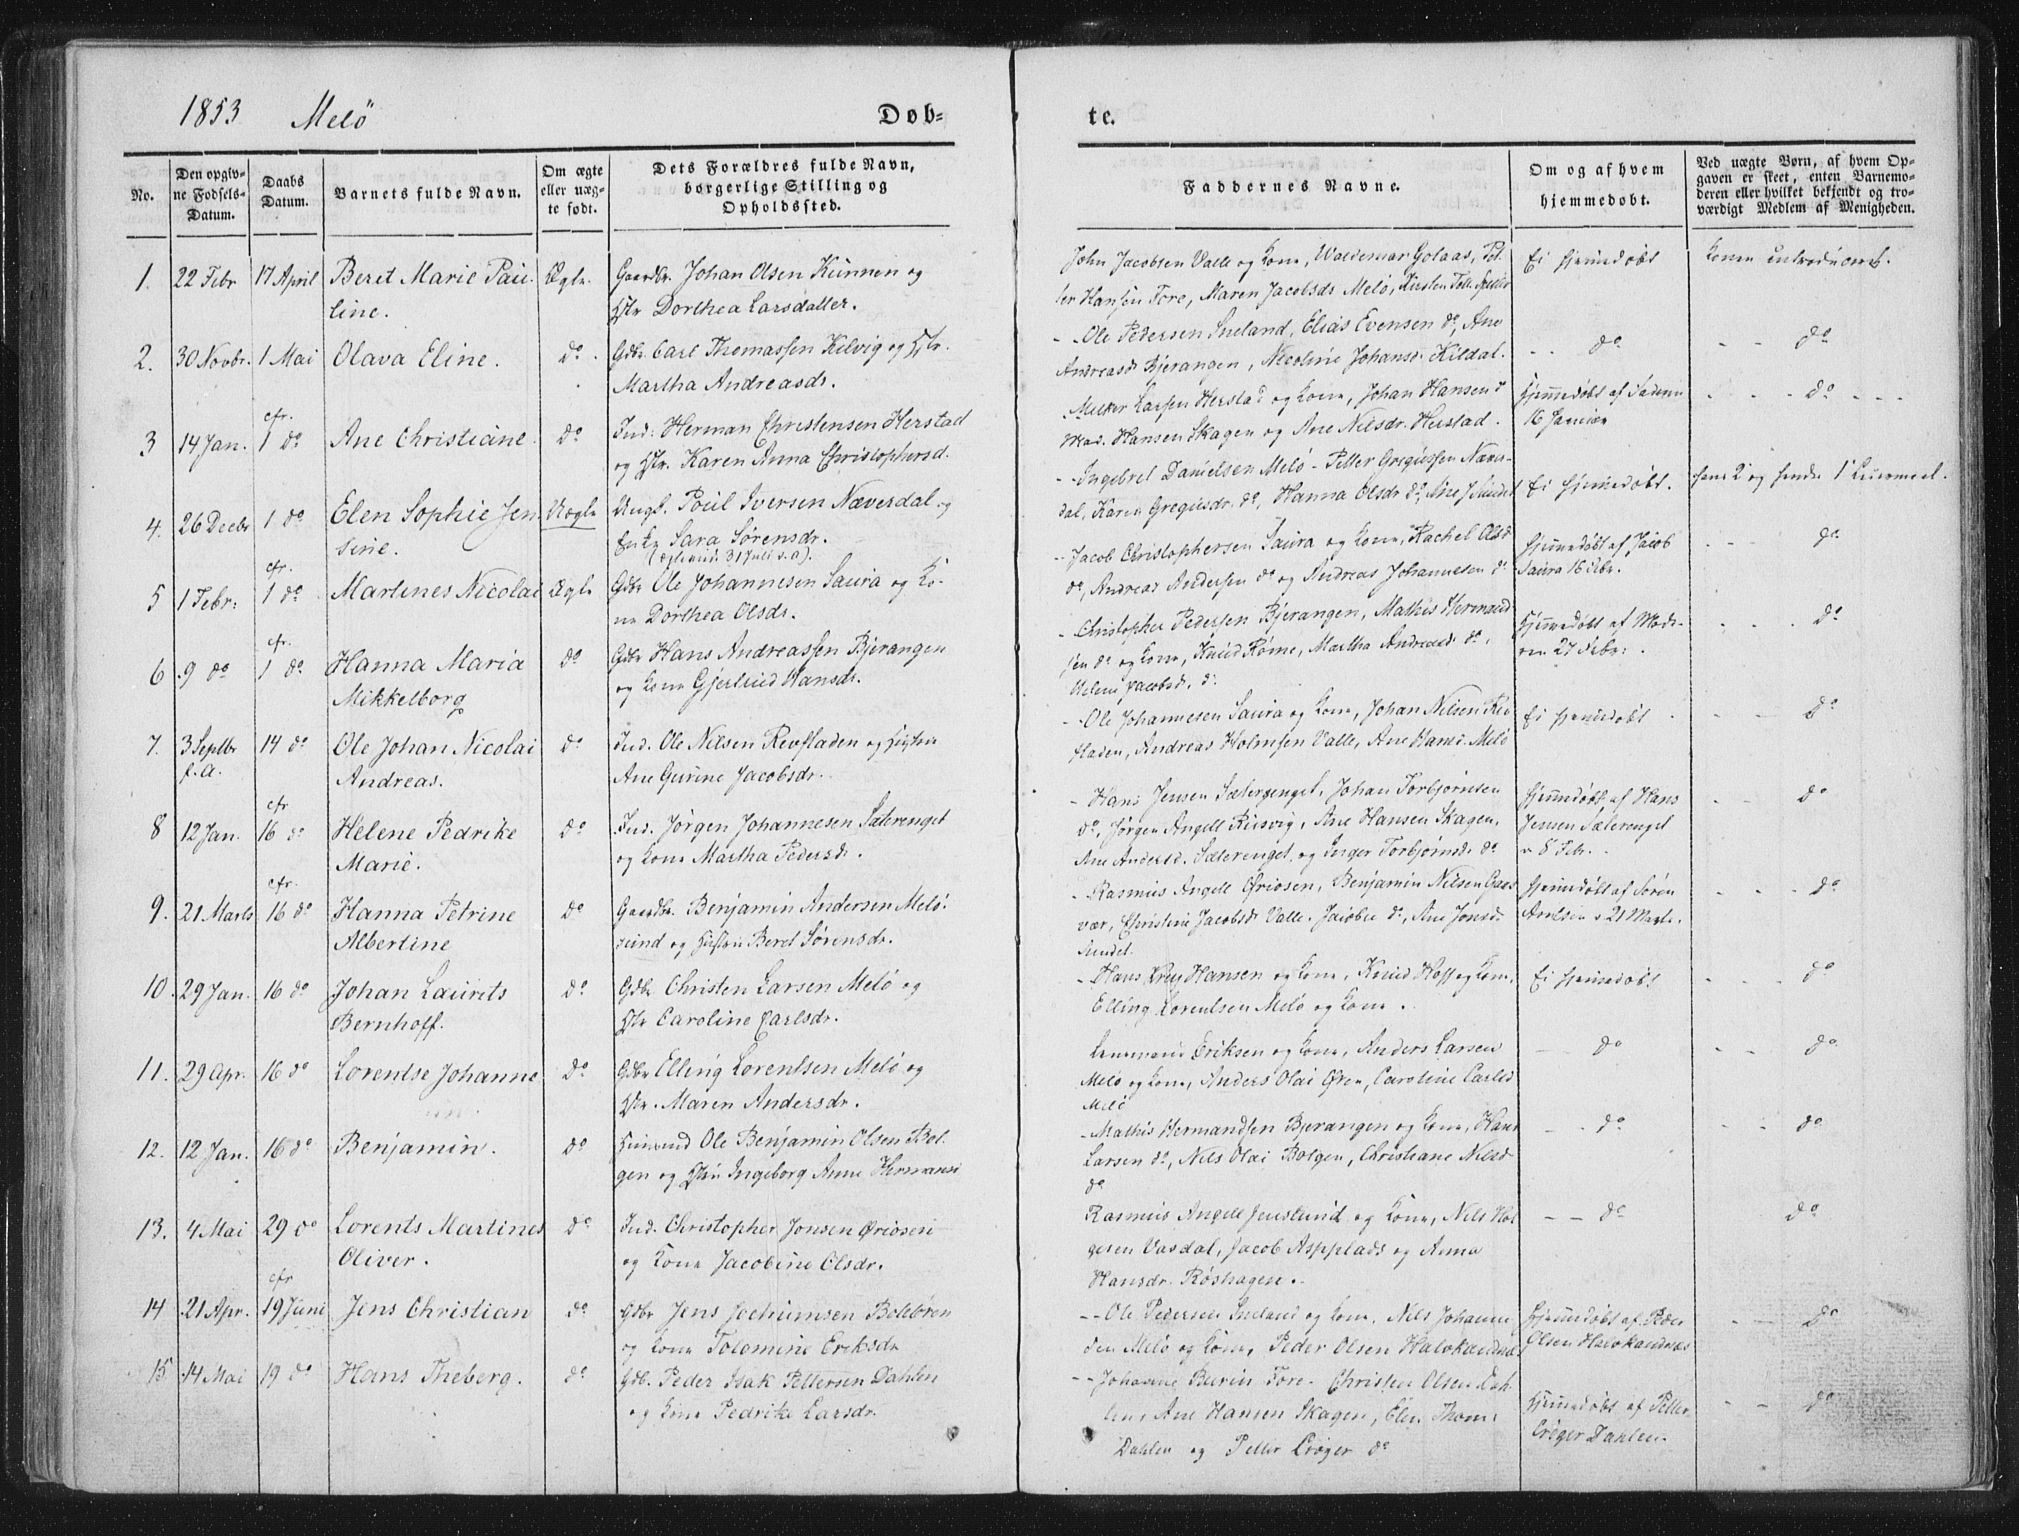 1853 Melö
Døb-
te.
No.
Den opgiv-
ne Fødsels-
Datum.
Daabs
Datum.
Barnets fulde Navn.
Om ægte
eller uæg-
te født.
Dets Forældres fulde Navn,
borgerlige Stilling og
Opholdssted.
Faddernes Navne.
Om og af hvem
hjemmedøbt.
Ved uægte Børn, af hvem Op-
gaven er skeet, enten Barnemo-
deren eller hvilket bekjendt og tro-
værdigt Medlem af Menigheden.
1. 22 Febr 17 April Beret Marie Pau-
line.
Ægte.
Gaardbr. Johan Olsen Kunnen og
Hstr Dorthea Larsdatter.
John Jacobsen Valle og Kone, Waldemar Golaas, Pet-
ter Hansen Fore, Maren Jacobsdr Melö, Kirsten
Ei hjemmedøbt
Konen introduceret.
2. 30 Novbr. 1 Mai Olava Eline.
do.
Gdbr Carl Thomassen Kilvig og Hstr.
Martha Andreasdr.
- Ole Pedersen Sneland, Elias Evensen do, Ane
Andreasdr Bjerangen, Nicoline Johansdr Kildal.
- - do
- - do
3 14 Jan. cfr. 1 do. Ane Christiane.
do
Ind: Herman Christensen Herstad
og Hstr. Karen Anna Christophersd.
Melker Larsen Herstad og Kone, Johan Hansen do
Mad. Hansen Skagen og Ane Nilsdr. Herstad.
Hjemmedøbt af
16 Januar
- - do - - -
4. 26 Decbr 1 do Elen Sophie Jen-
sine.
Uægte
Ungk. Poul Iversen Næverdal og
Enke Sara Sørensdr.
- Ingebret Danielsen Melö - Petter Gregussen Næver-
dal, Karen Gregusdr. do, Hanna Olsdr do, Ane J Sundet
Ei hjemmedøbt.
hans 2 og hendes 1 Leiermaal.
5 1 Febr: cfr. 1 do Martines Nicolai
Ægte
Gdbr Ole Johannesen Saura og Ko-
ne Dorthea Olsdr.
- Jacob Christophersen Saura og Kone, Rachel Olsd
do, Andreas Andersen do og Andreas Johannesen do
Hjemmedøbt af Jacob
Saura 16 Febr.
- - do
6 9 do cfr. 1 do. Hanna Maria
Mikkelborg
do
Gdbr Hans Andreassen Bjerangen
og Kone Gjertrud Hansdr.
- Christopher Pedersen Bjerangen, Mathis Hermand-
sen do og Kone, Knud Røme, Martha Andreasd do,
Helene Jacobsd. do
Hjemmedøbt af Mode-
ren 27 Febr.
- - do
7. 3 Septbr
f. a.
14 do Ole Johan Nicolai
Andreas.
do
Ind. Ole Nilsen Revfladen og Hustru
Ane Gurine Jacobsdr.
- Ole Johannesen Saura og Kone, Johan Nilsen Rev-
fladen, Andreas Holmsen Valle, Ane Hansd. Melö
Ei hjemmedøbt
- - do
8 12 Jan. cfr 16 do Helene Pedrike
Marie.
do
Ind. Jørgen Johannesen Sæterenget
og Kone Martha Pedersdr.
- Hans Jensen Sæterenget, Johan Torbjørnsen
do, Jørgen Angell Rusvig, Ane Hansen Skagen,
Ane Andersd. Sæterenget og Inger Torbjørnsd. do
Hjemmedøbt af Hans
Jensen Sæterenget
8 Febr.
- - do
9. 21 Marts cfr. 16 do Hanna Petrine
Albertine
do
Gaardbr. Benjamin Andersen Melö-
sund og Hustru Beret Sørensdr.
- Rasmus Angell Øriosen, Benjamin Nilsen Gaas
vær, Christine Jacobsdr Valle. Jacobu do, Ane Jonsd.
Sundet.
Hjemmedøbt af Søren
21 Marts.
- - do
10. 29 Jan. 16 do Johan Laurits
Bernhoff.
do
Gdbr Christen Larsen Melö og
Hstr Caroline Carlsdr.
- Hans Krey Hansen og Kone, Knud Hoff og Kone,
Elling Lorentsen Melö og Kone.
Ei hjemmedøbt
- - do
11. 29 Apr. 16 do Lorentse Johanne
do
Gdbr Elling Lorentsen Melö og
Hstr. Maren Andersdr.
Lensmand Eriksen og Kone, Anders Larsen
Melö og Kone, Anders Olai Øren, Caroline Carlsd
Melö
- do
- - do
12. 12 Jan. 16 do Benjamin.
do
Huusmd Ole Benjamin Olsen Bol-
gen og Hstr Ingeborg Anne Hermansd
- Mathis Hermandsen Bjerangen og Kone, Hans
Larsen do, Nils Olai Bolgen, Christiane Nilsd
do
- - do
- - do
13. 4 Mai 29 do Lorents Martines
Oliver.
do
Ind. Christopher Jonsen Øriosen
og Kone Jacobine Olsdr.
Rasmus Angell Jenslund og Kone, Nils Hol
gesen Vasdal, Jacob Aspplads og Anna
Hansdr. Røshagen.
- - do
do
14 21 Apr. cfr 19 Juni Jens Christian
do
Gdbr Jens Jochumsen Bolebøren
og Kone Tolomine Eriksdr
-- Ole Pedersen Sneland og Kone, Nils Johanne
sen Melö og Kone, Peder Olsen Halskandnæs
Hjemmedøbt af Peder
Olsen Halskandnæs
- - do
15 14 Mai 19 do Hans Theberg.
do
Gdb. Peder Isak Pettersen Dahlen
og Kone Pedrike Larsdr.
-- Johanne Burin Fore. Christen Olsen Dah-
len, Ane Hansen Skagen, Elen Thoms
Dahlen og Petter Crøger do
Hjemmedøbt af Petter
Crøger Dahlen.
- - do